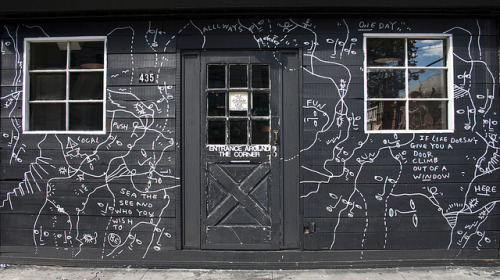 ALLWAYS
ONE DAY...
435
FUN
PUSH
LOCAL
ENTRANCE AROUND
THE CORNER
RUN
IF LIFE DOESN'T
GIVE YOU A
DOOR
CLIMB
OUT OF A
WINDOW
HERE
SEA THE
SEE AND
WHO YOU
WISH
TO